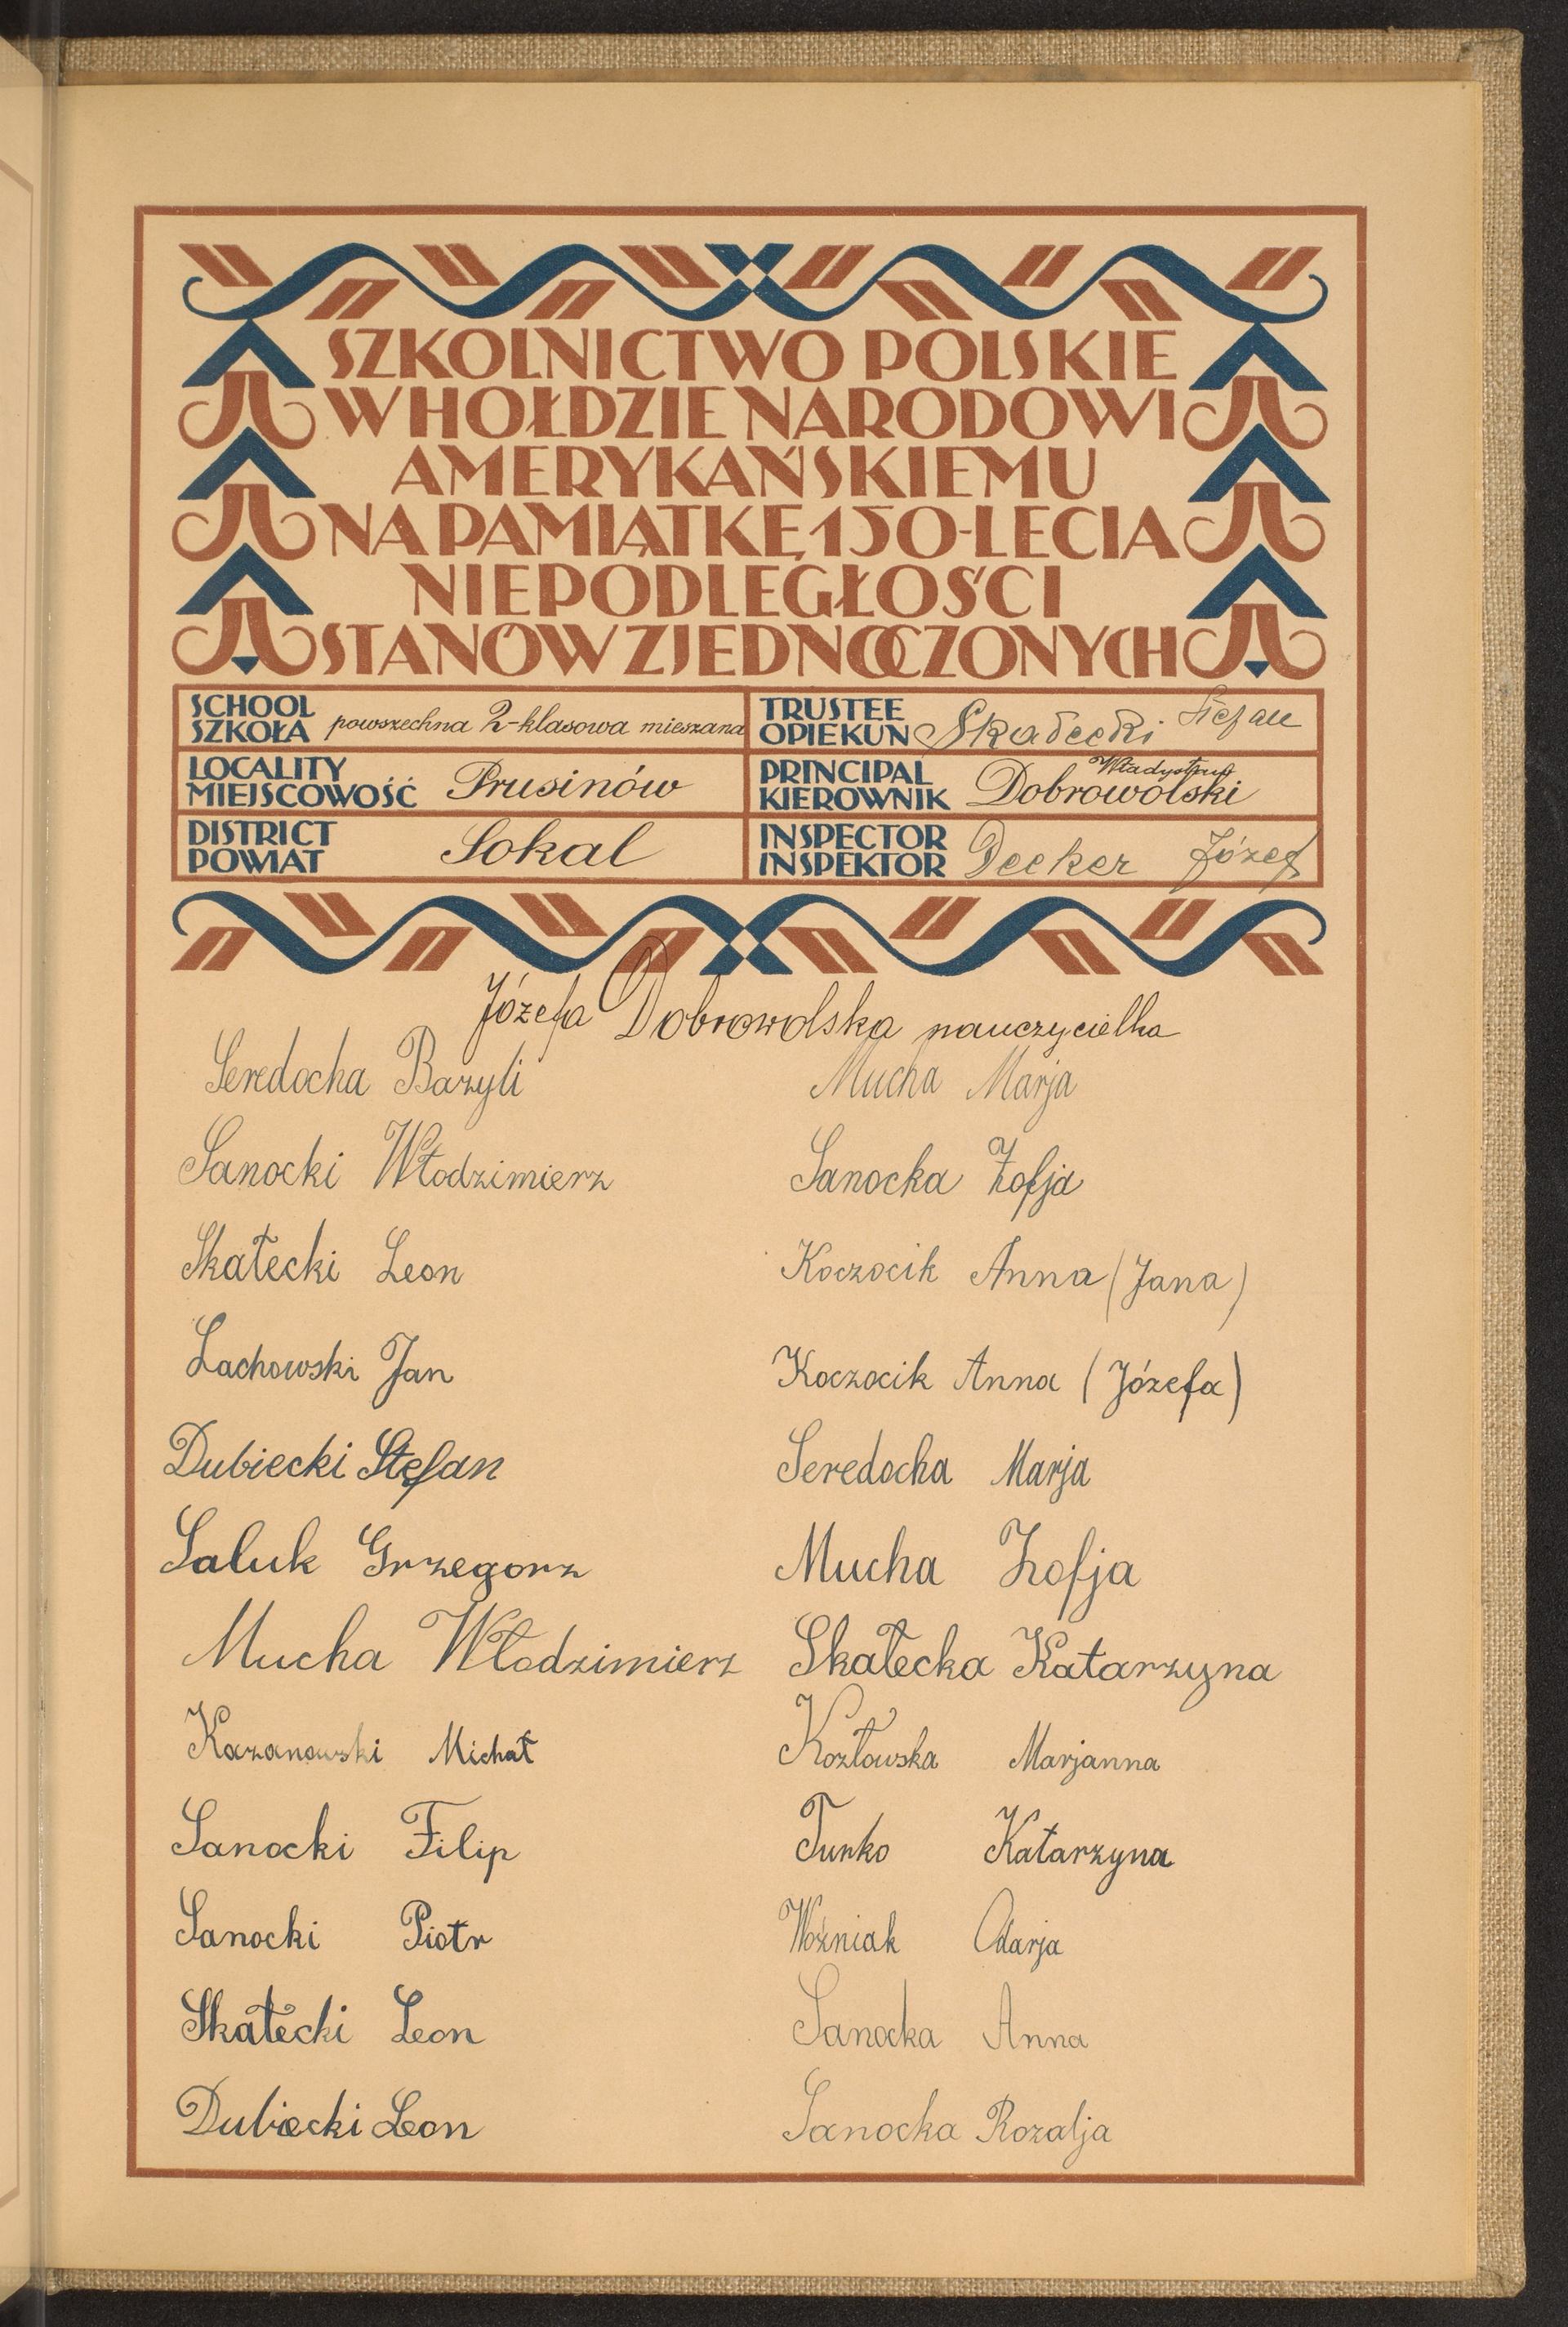 SZKOLNICTWO POLSKIE
W HOŁDZIE NARODOWI
AMERYKAŃSKIEMU
NA PAMIĄTKĘ 150-LECIA
NIEPODLEGŁOŚCI
STANÓW ZJEDNOCZONYCH
SCHOOL
SZKOŁA powszechna 2-klasowa mieszana
TRUSTEE
OPIEKUN Skałecki Stefan
LOCALITY
MIEJSCOWOŚĆ Prusinów
PRINCIPAL
KIEROWNIK Dobrowolski Władysław
DISTRICT
POWIAT Sokal
INSPECTOR
INSPEKTOR Decker Józef
Józefa Dobrowolska nauczycielka
Seredocha Bazyli
Sanocki Włodzimierz
Skałecki Leon
Lachowski Jan
Dubiecki Stefan
Saluk Grzegorz
Mucha Włodzimierz
Kazanowski Michał
Sanocki Filip
Sanocki Piotr
Skałecki Leon
Dubiecki Leon
Mucha Marja
Sanocka Zofja
Koczocik Anna (Jana)
Koczocik Anna (Józefa)
Seredocha Marja
Mucha Zofja
Skałecka Katarzyna
Kozłowska Marjanna
Tunko Katarzyna
Woźniak Odarja
Sanocka Anna
Sanocka Rozalja